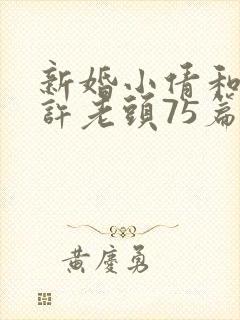 新婚小倩和
許老頭75篇
黃慶勇